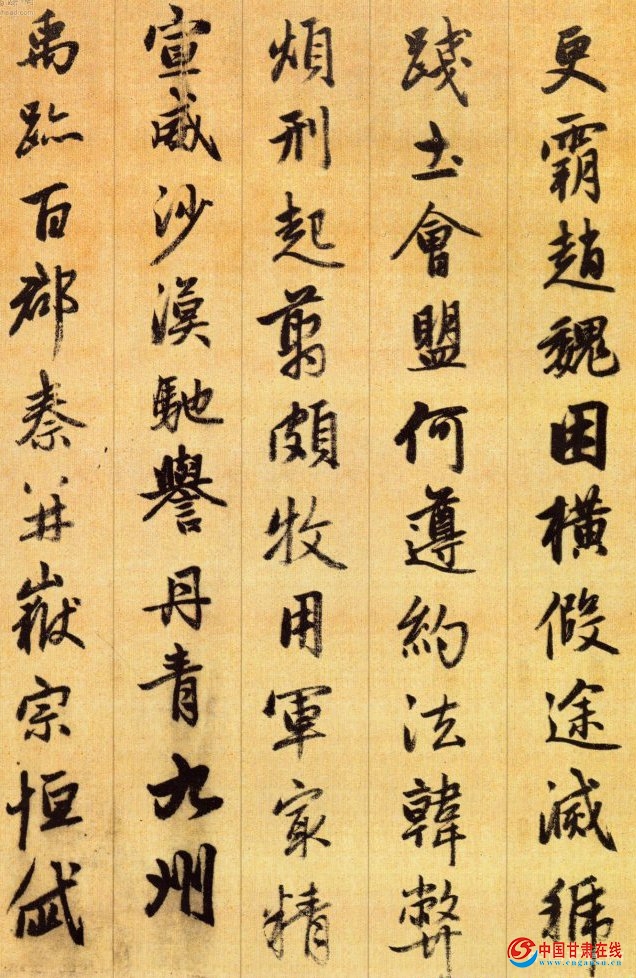 更霸趙魏困橫假途滅虢
踐土會盟何遵約法韓弊
煩刑起翦頗牧用軍冣精
宣威沙漠馳譽丹青九州
禹跡百郡秦并嶽宗恒岱
中国甘肃在线
www.cngansu.cn